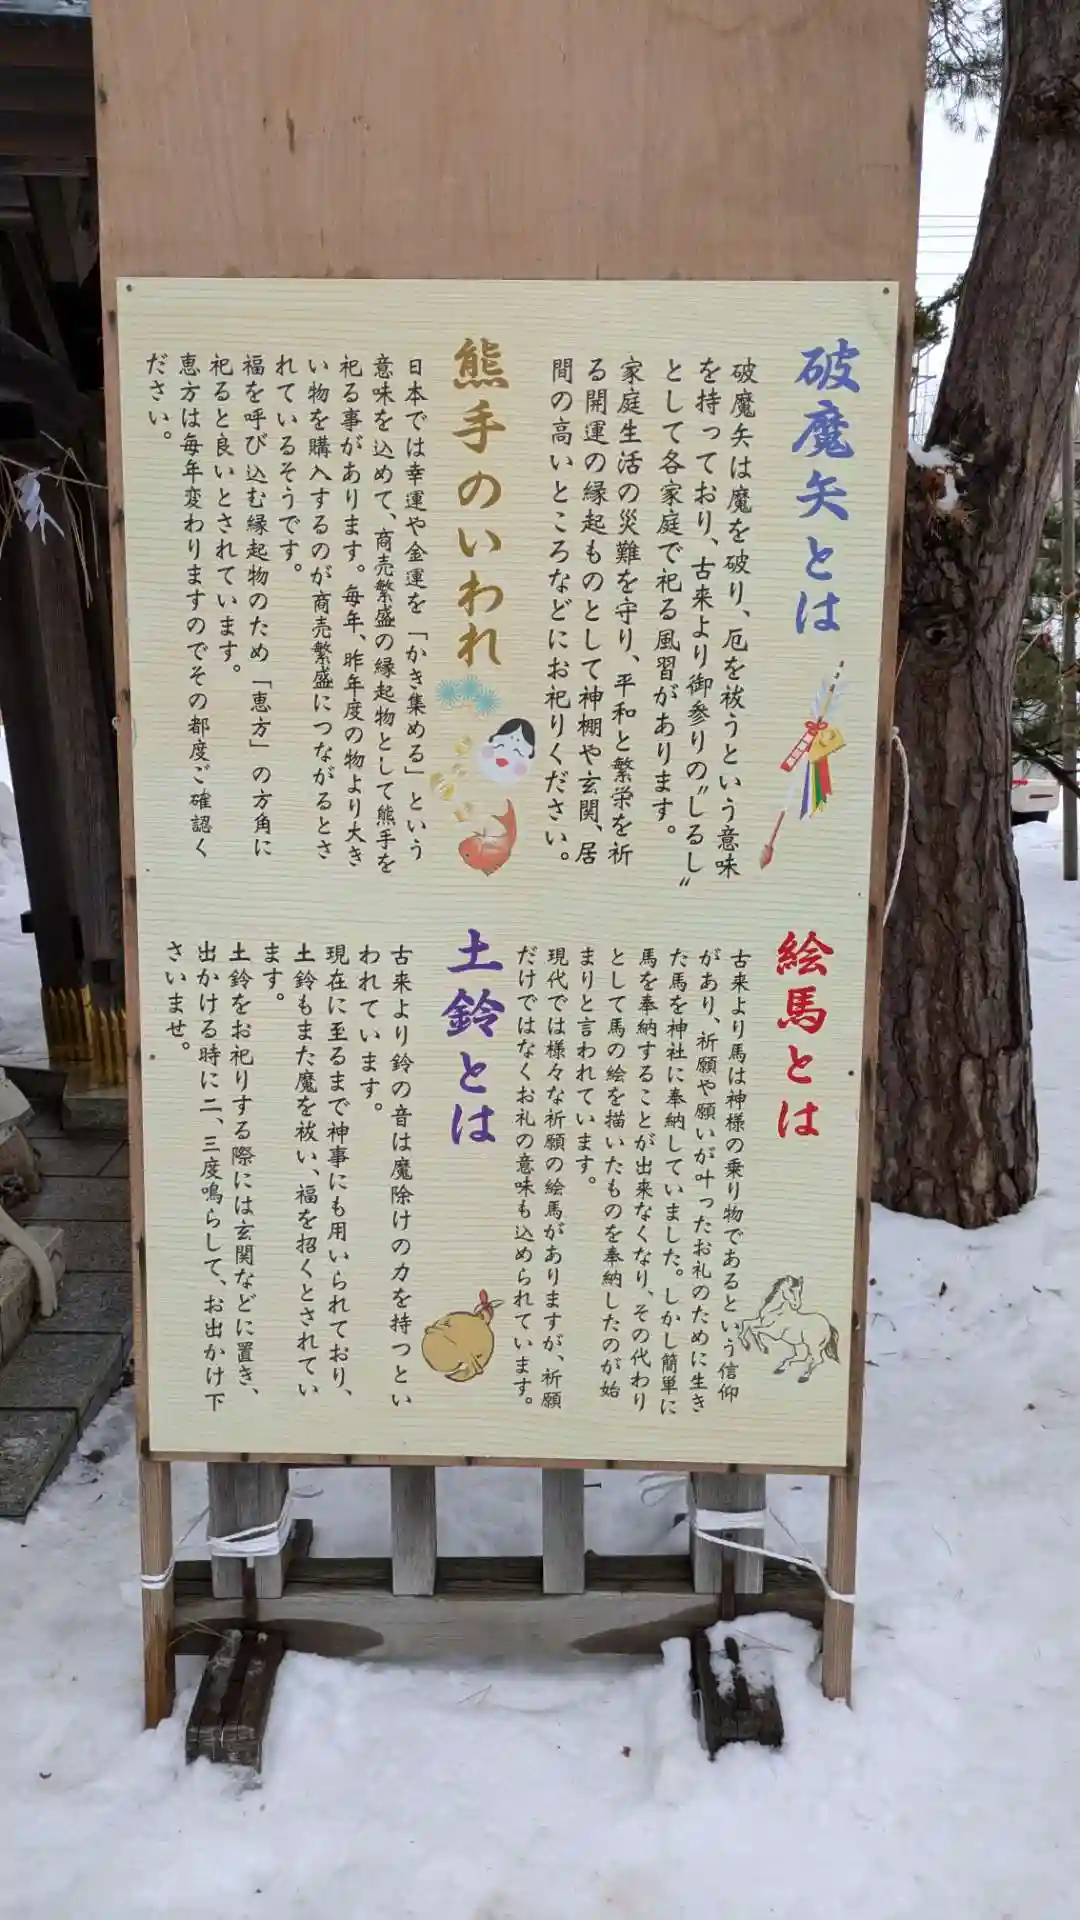 破魔矢とは
破魔矢は魔を破り、厄を祓うという意味
を持っており、古来より御参りの〝しるし〟
として各家庭で祀る風習があります。
家庭生活の災難を守り、平和と繁栄を祈
る開運の縁起ものとして神棚や玄関、居
間の高いところなどにお祀りください。
熊手のいわれ
日本では幸運や金運を「かき集める」という
意味を込めて、商売繁盛の縁起物として熊手を
祀る事があります。毎年、昨年度の物より大き
い物を購入するのが商売繁盛につながるとさ
れているそうです。
福を呼び込む縁起物のため「恵方」の方角に
祀ると良いとされています。
恵方は毎年変わりますのでその都度ご確認く
ださい。
絵馬とは
古来より馬は神様の乗り物であるという信仰
があり、祈願や願いが叶ったお礼のために生き
た馬を神社に奉納していました。しかし簡単に
馬を奉納することが出来なくなり、その代わり
として馬の絵を描いたものを奉納したのが始
まりと言われています。
現代では様々な祈願の絵馬がありますが、祈願
だけではなくお礼の意味も込められています。
土鈴とは
古来より鈴の音は魔除けの力を持つとい
われています。
現在に至るまで神事にも用いられており、
土鈴もまた魔を祓い、福を招くとされてい
ます。
土鈴をお祀りする際には玄関などに置き、
出かける時に二、三度鳴らして、お出かけ下
さいませ。